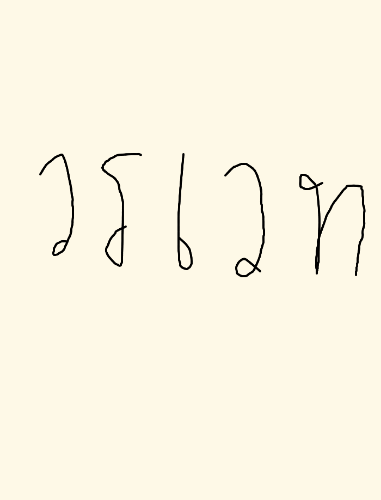 วรเวท